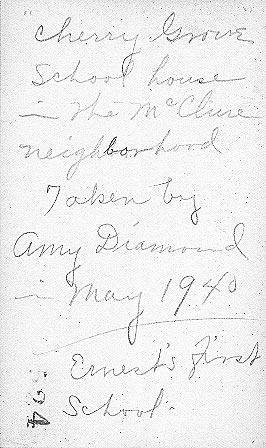 "Cherry Grove"
School house
in the McClure
neighborhood
Taken by
Amy Diamond
in May 1940
Ernest's first
School.